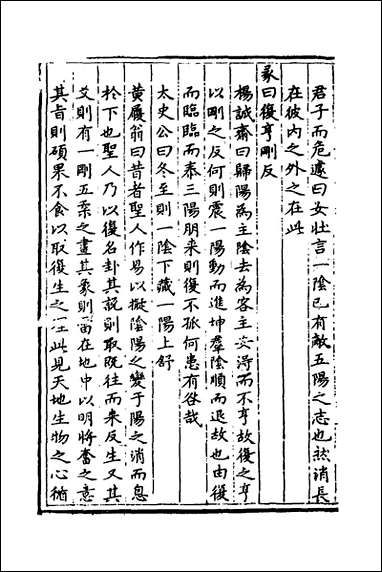 君子而危遽曰女壯言一陰已有敵五陽之志也然消長
在彼内之外之在此
彖曰復亨剛反
楊誠齋曰歸陽為主陰去為客主安得而不亨故復之亨
以剛之反何則震一陽動而進坤羣陰順而退故也由復
而臨臨而泰三陽朋来則復不孤何患有咎哉
太史公曰冬至則一陰下藏一陽上舒
黄履翁曰昔者聖人作易以擬陰陽之變于陽之消而息
於下也聖人乃以復名卦其說則取既往而来反生又其
爻則有一剛五柔之畫其象則雷在地中以明将奮之意
其㫖則碩果不食以取復生之 此見天地生物之心循